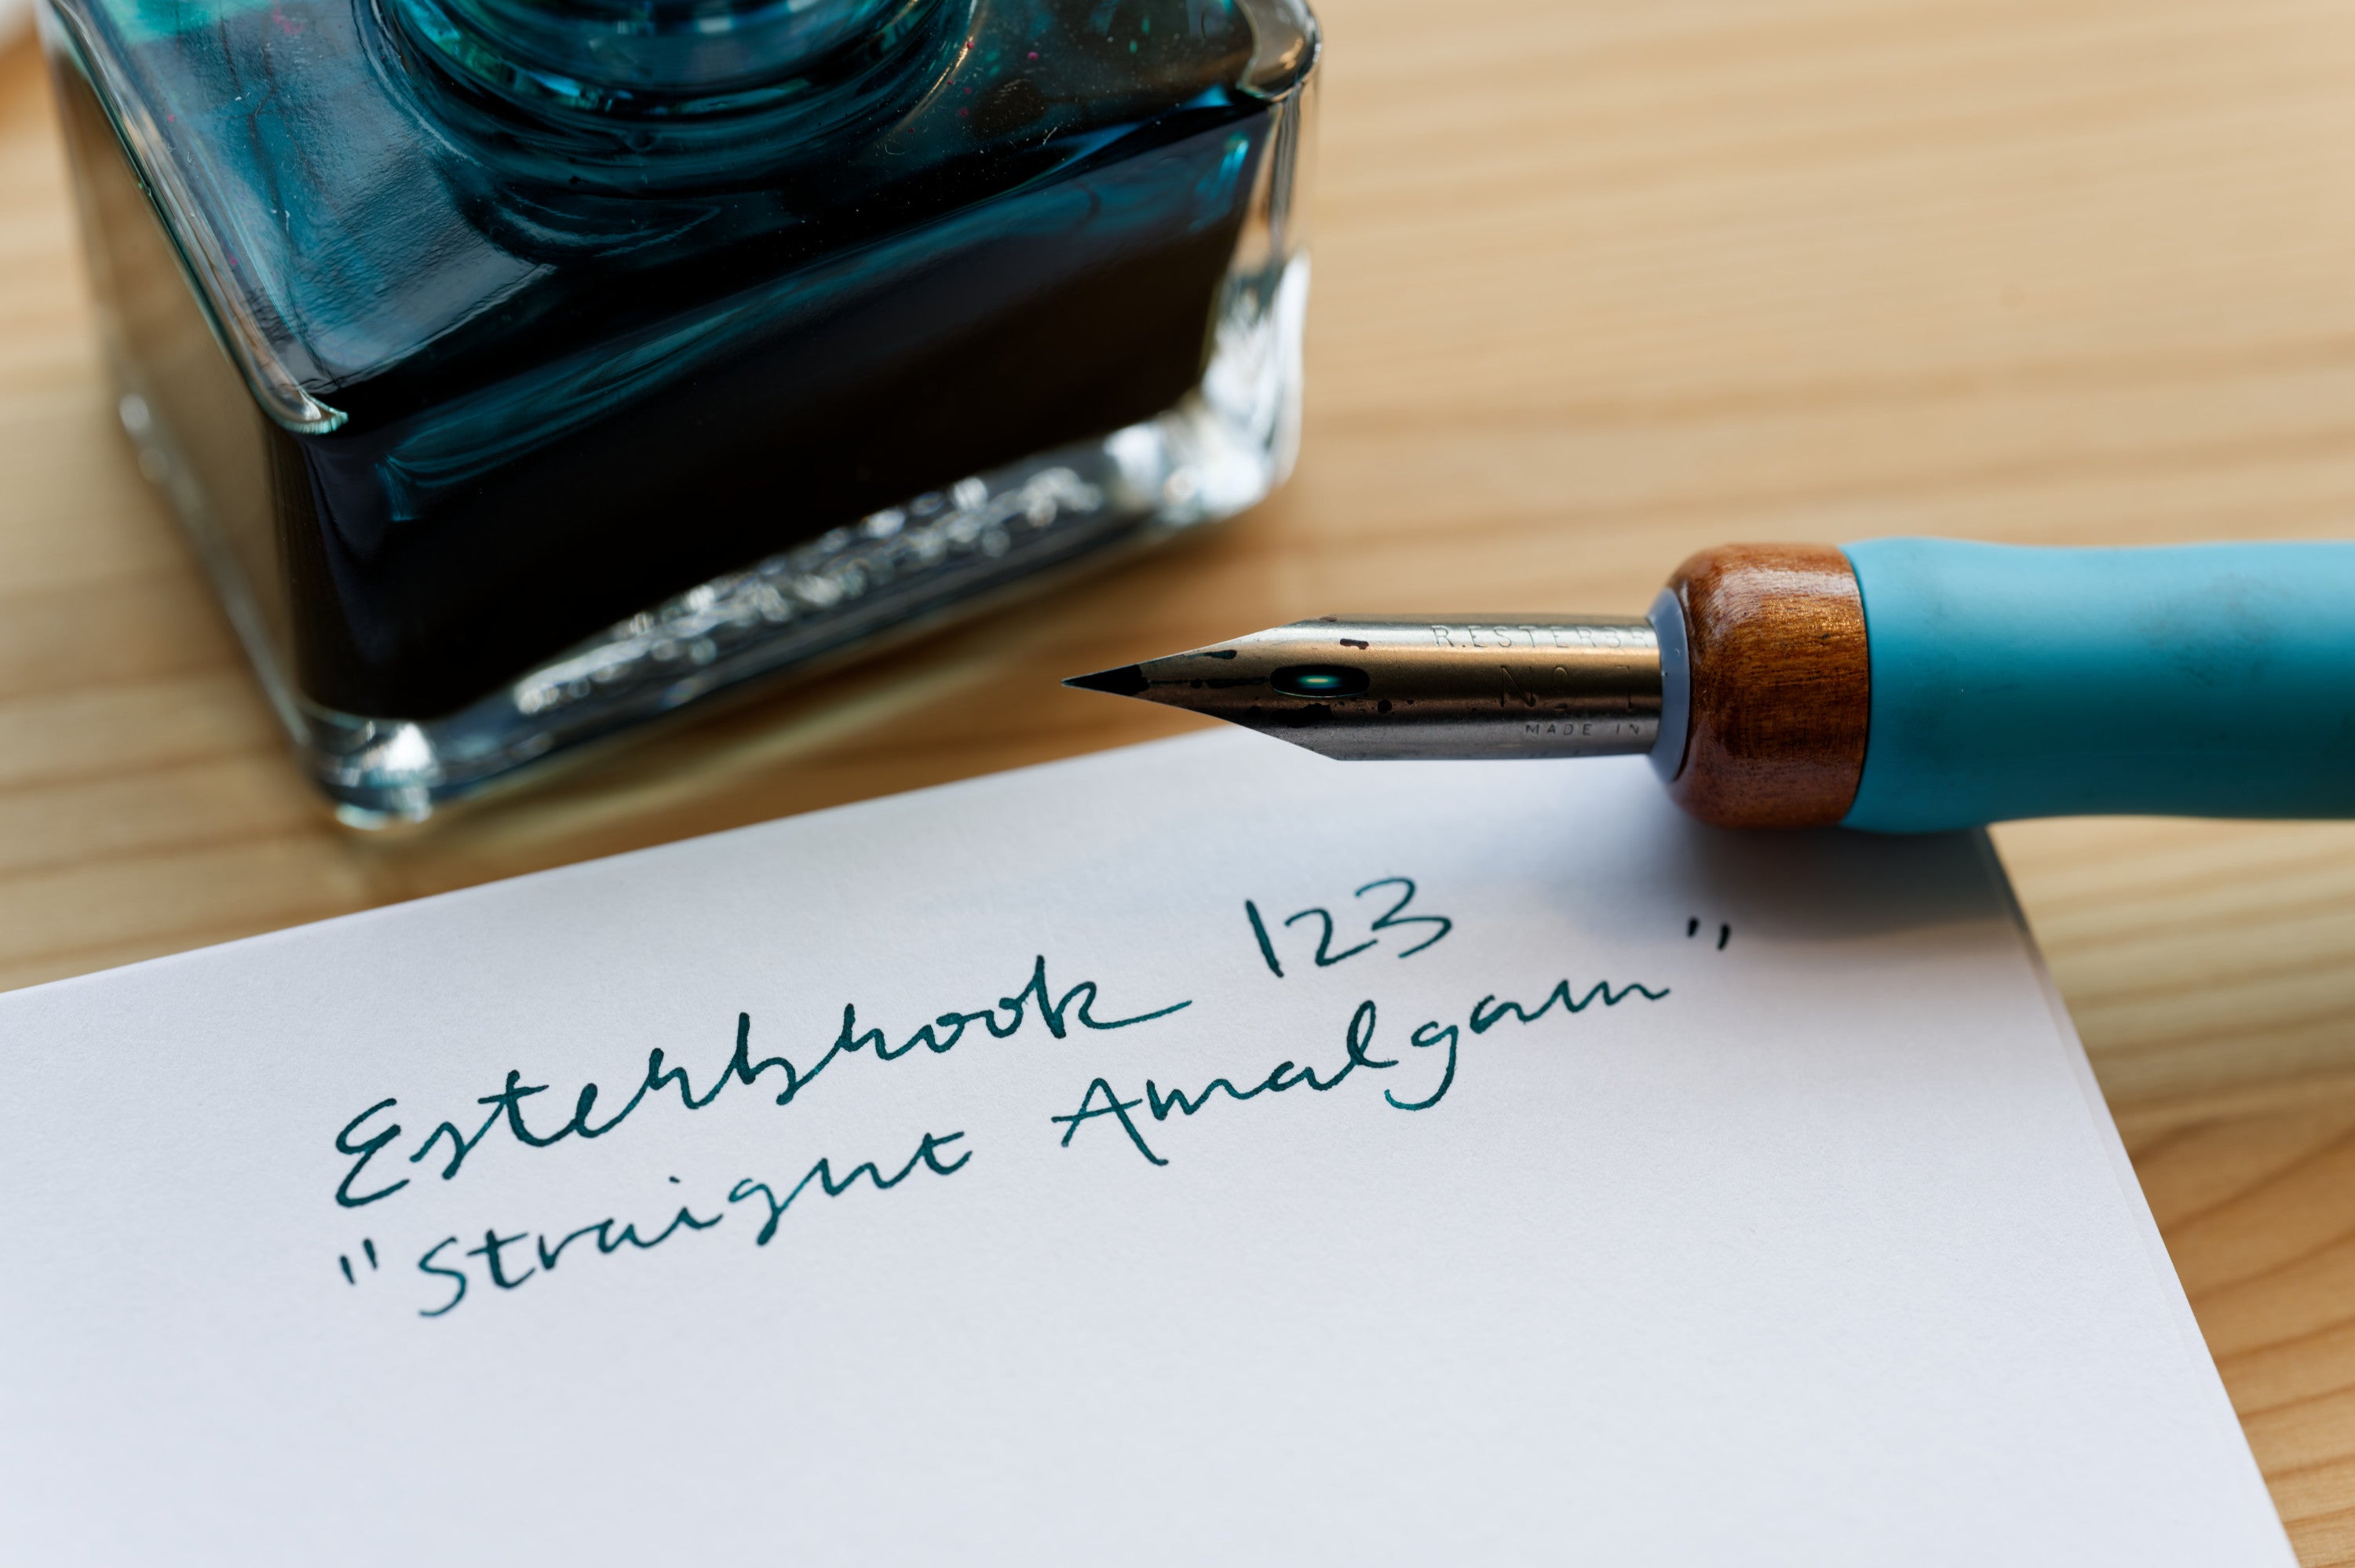 R.ESTERBR
No 1
MADE IN
Esterbrook 123
"Straight Amalgam"